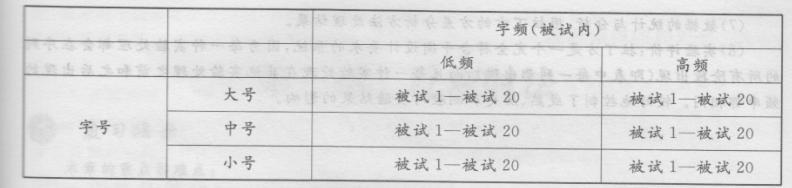 字频(被试内)
低频 高频
字号 大号 被试 1—被试 20 被试 1—被试 20
中号 被试 1—被试 20 被试 1—被试 20
小号 被试 1—被试 20 被试 1—被试 20